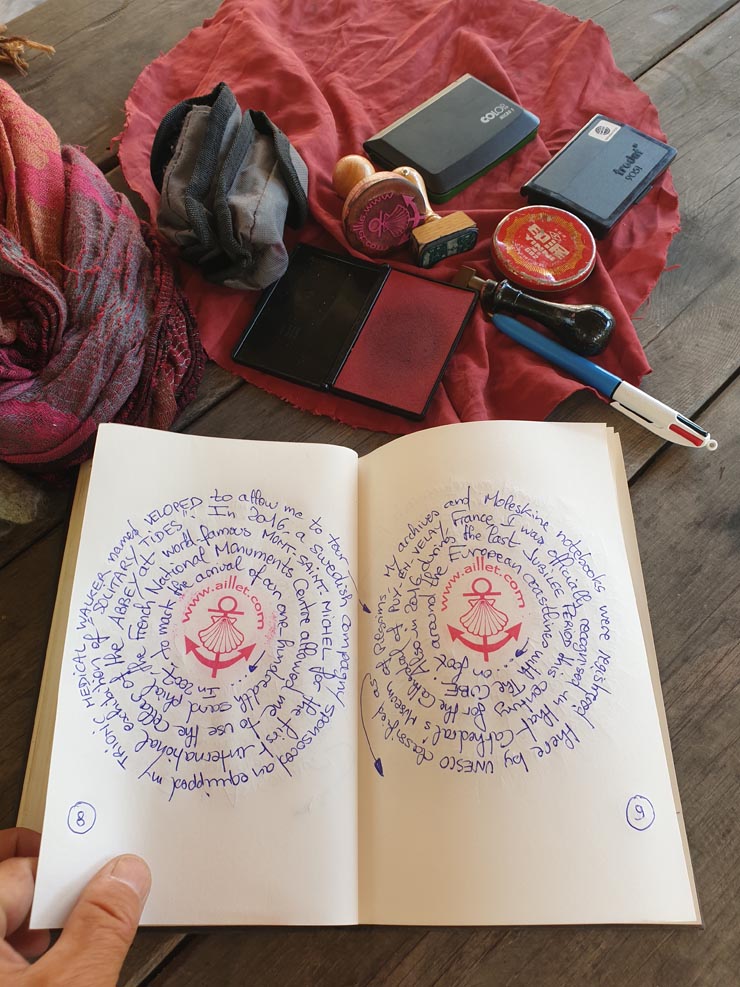 COLOP
trodat
9051
www.aillet.com
In 2007, to mark the arrival of our one-hundredth sand phial
the French National Monuments Centre allowed me to use the cellar
of the ABBEY at world-famous MONT-SAINT-MICHEL for the first international exhibition of
"SOLITARY TIDES". In 2016, a Swedish compagny sponsored an equipped my
TRIONIC MEDICAL WALKER named VELOPED to allow me to tour
8
www.aillet.com
around the European coastline with The CUBE
... on foot.
in 2016, during the last JUBILEE PERIOD this century for the Cathedral
of PUY-EN-VELAY France I was officially recognised in that Cathedral's Museum of
My archives and Moleskine notebooks were registered there by UNESCO classified as
9